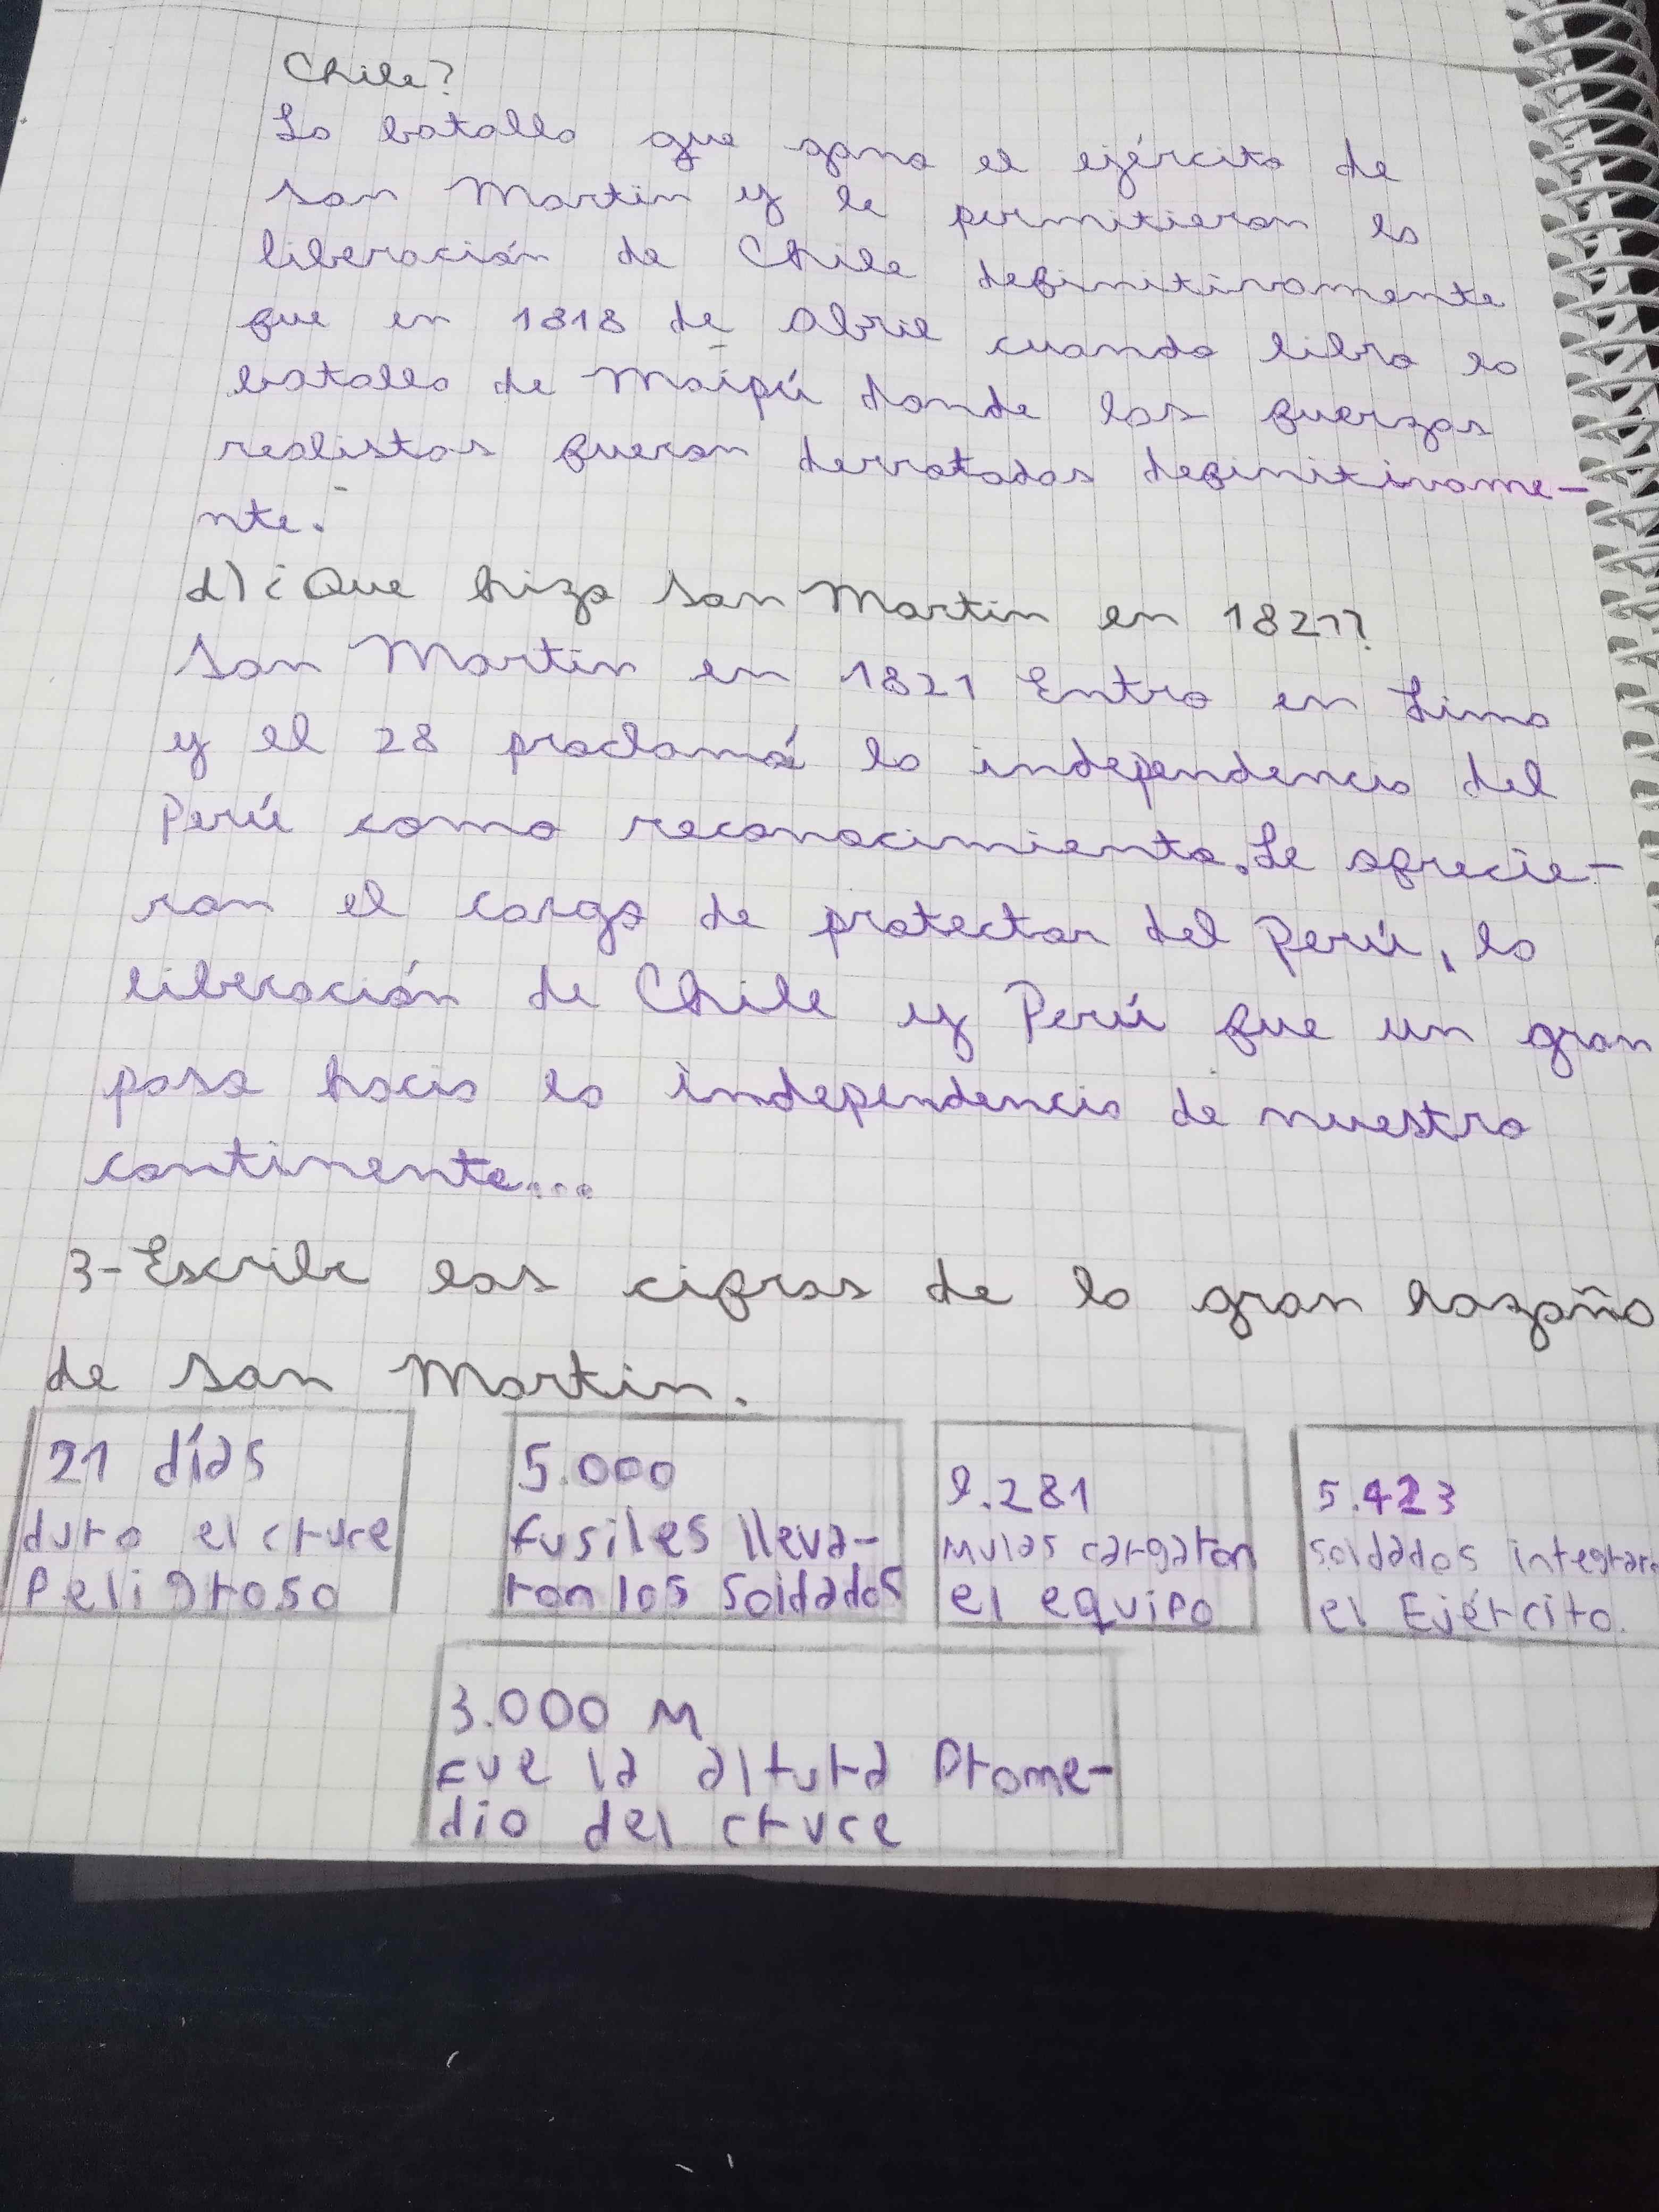 Chile?
La batalla que gana el ejército de
san Martin y le permitieron la
liberación de Chile definitivamente
fue en 1818 de Abril cuando libra la
batalla de Maipú donde las fuerzas
realistas fueron derrotadas definitivame-
nte.
d) ¿Que hizo san Martin en 1821?
San Martin en 1821 Entra en Lima
y el 28 proclamá la independencia del
Perú como reconocimiento. Le afrecie-
ron el cargo de protector del Perú, la
liberación de Chile y Perú fue un gran
paso hacia la independencia de nuestro
continente...
3-Escribe las cifras de la gran hazaña
de san Martin.
21 días
duro el cruce
Peligroso
5.000
fusiles lleva-
ron los soldados
9.281
mulas cargaron
el equipo
5.423
soldados integraro
el Ejército.
3.000 M
fue la altura Prome-
dio del cruce